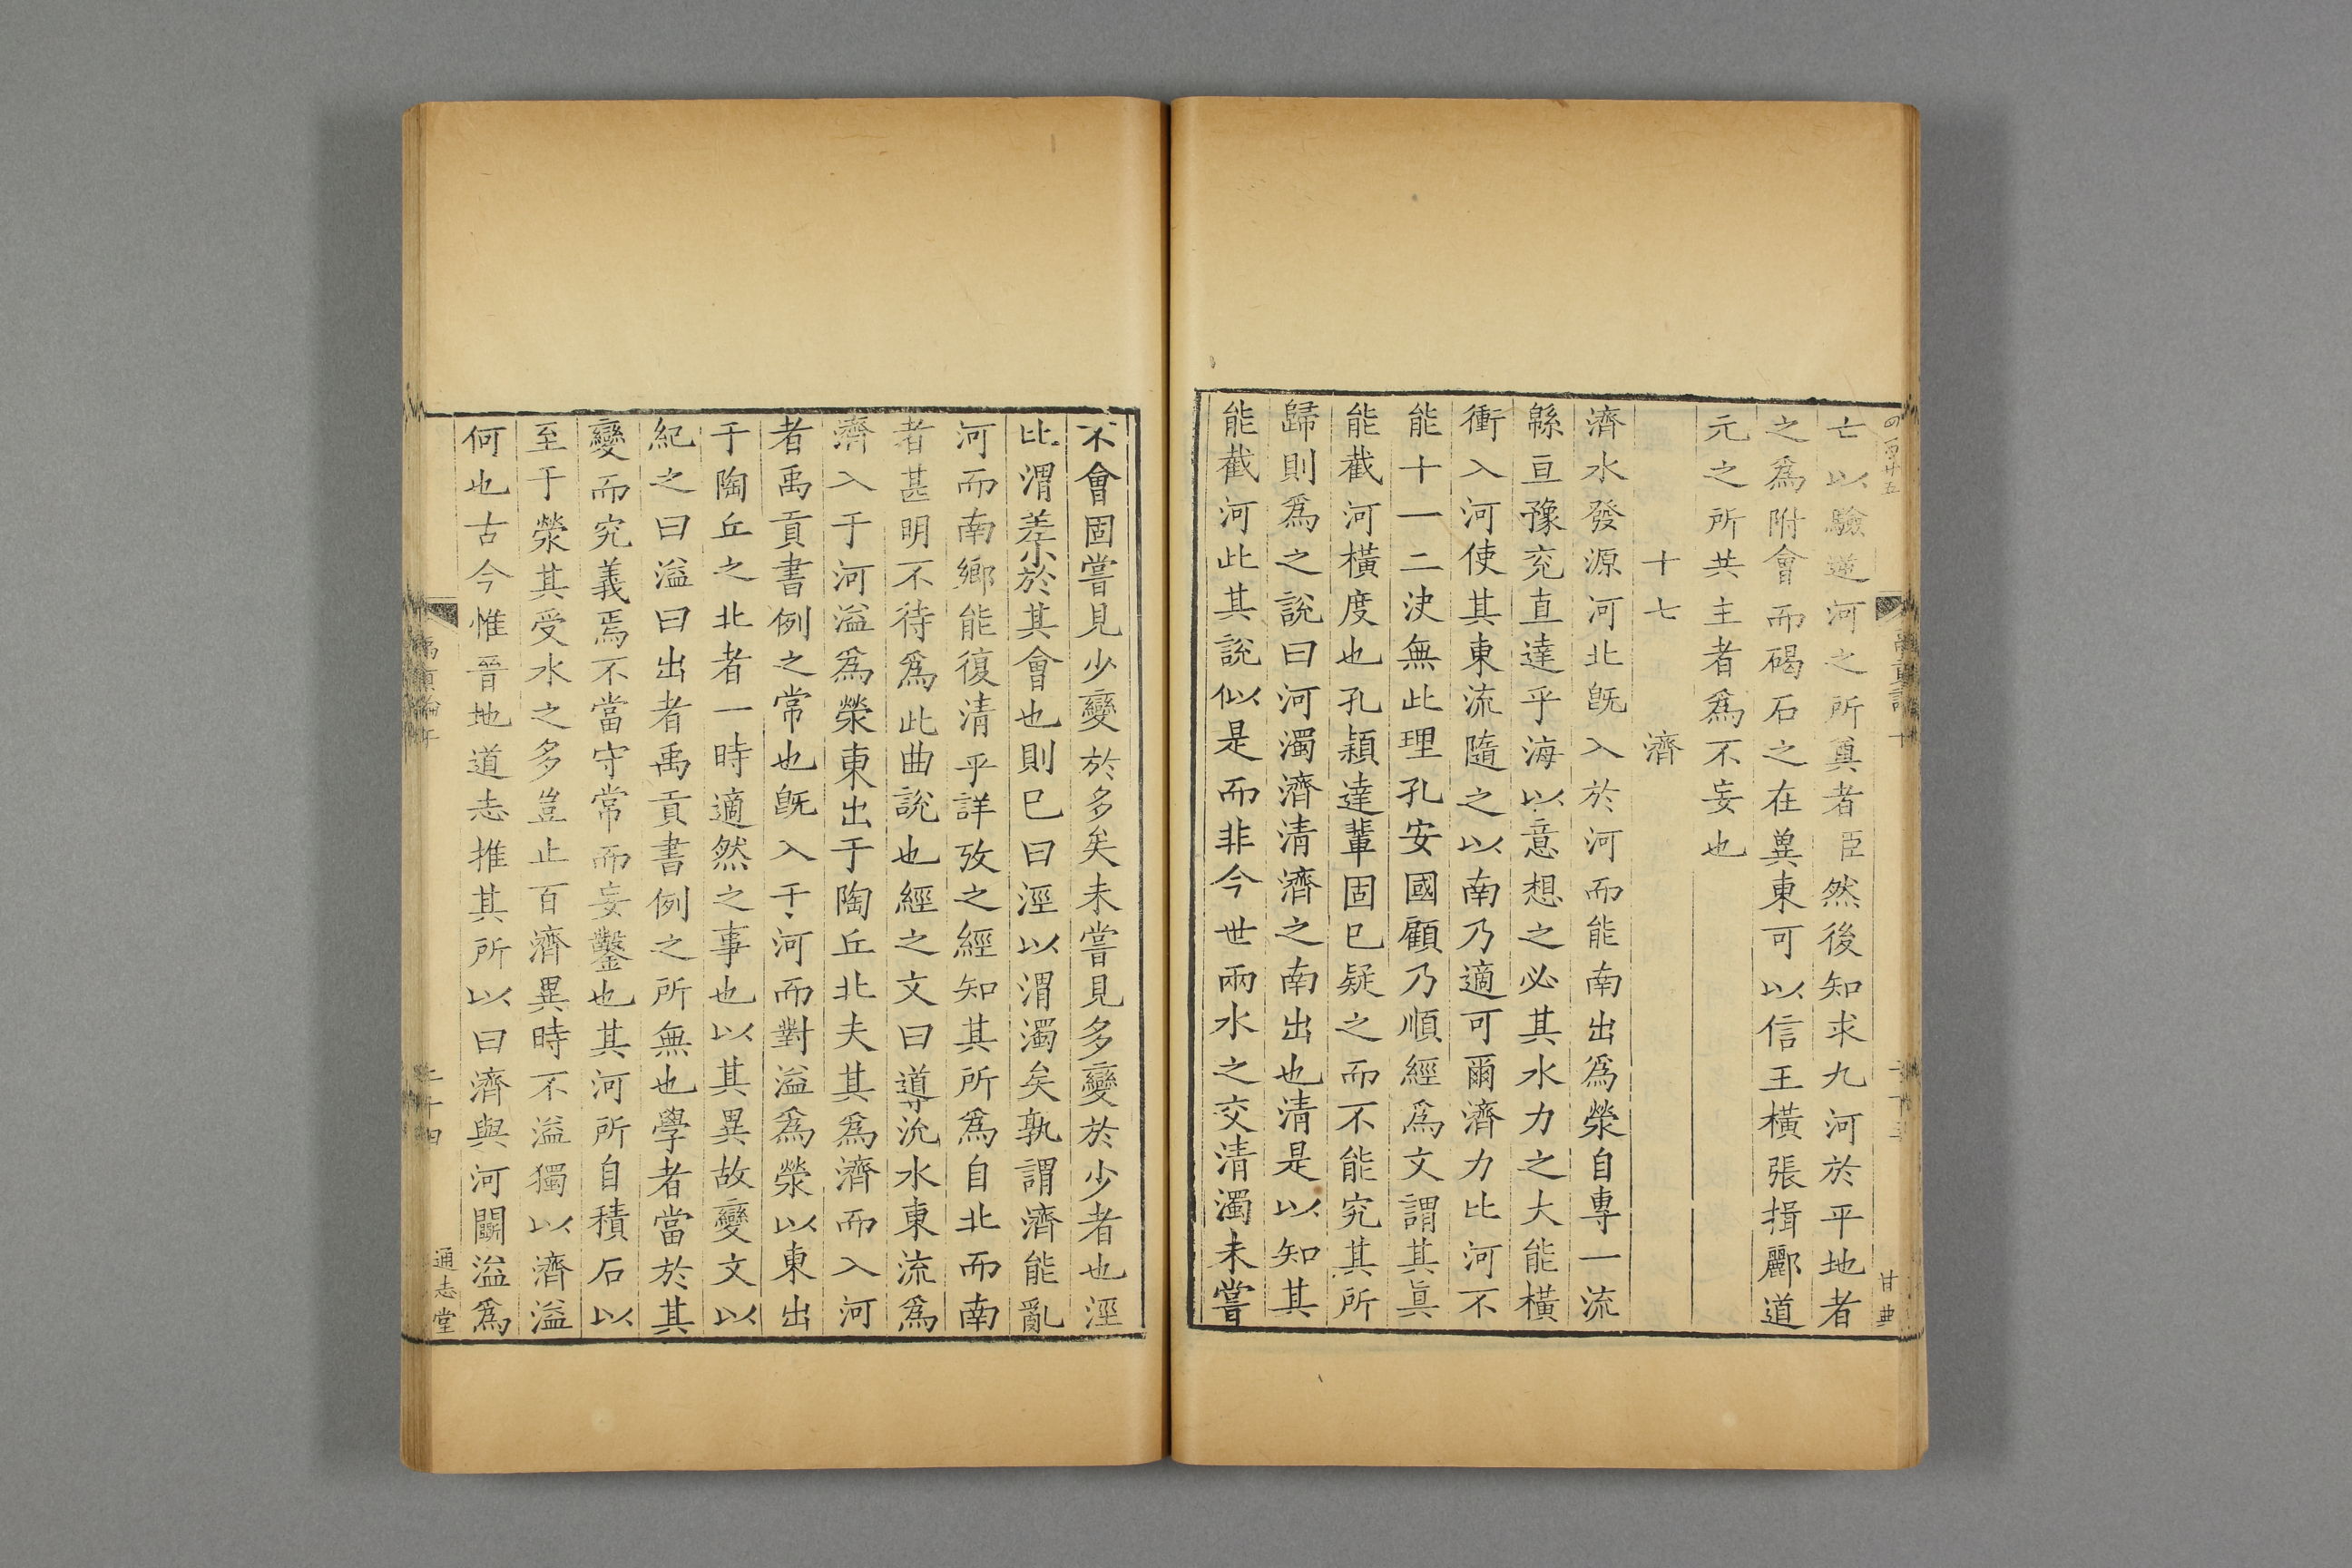 亡以驗逆河之所奠者臣然後知求九河於平地者
之爲附會而碣石之在異東可以信王橫張揖酈道
元之所共主者爲不妄也
十七　濟
濟水發源河北旣入於河而能南出爲滎自專一流
緜亘豫兖直達乎海以意想之必其水力之大能橫
衝入河使其東流隨之以南乃適可爾濟力比河不
能十一二決無此理孔安國顧乃順經爲文謂其眞
能截河橫度也孔穎達輩固已疑之而不能究其所
歸則爲之說曰河濁濟清濟之南出也清是以知其
能截河此其說似是而非今世兩水之交清濁未嘗
不會固嘗見少變於多矣未嘗見多變於少者也涇
比渭差小於其會也則已曰涇以渭濁矣孰謂濟能亂
河而南鄉能復清乎詳攷之經知其所爲自北而南
者甚明不待爲此曲說也經之文曰導沇水東流爲
濟入于河溢爲滎東出于陶丘北夫其爲濟而入河
者禹貢書例之常也旣入于河而對溢爲滎以東出
于陶丘之北者一時適然之事也以其異故變文以
紀之曰溢曰出者禹貢書例之所無也學者當於其
變而究義焉不當守常而妄鑿也其河所自積石以
至于滎其受水之多豈止百濟異時不溢獨以濟溢
何也古今惟晉地道志推其所以曰濟與河鬭溢爲
二十四
通志堂